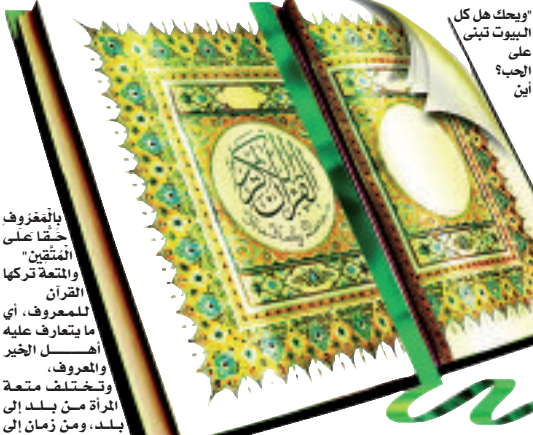 "ويحك هل كل
البيوت تبنى
على
الحب؟
أين
القرآن الكريم
بِالْمَعْرُوفِ
حَقًّا عَلَى
الْمُتَّقِين"
والمتعة تركها
القرآن
للمعروف، أي
ما يتعارف عليه
أهـــل الخير
والمعروف،
وتختلف متعة
المرأة من بلد إلى
بلد، ومن زمان إلى